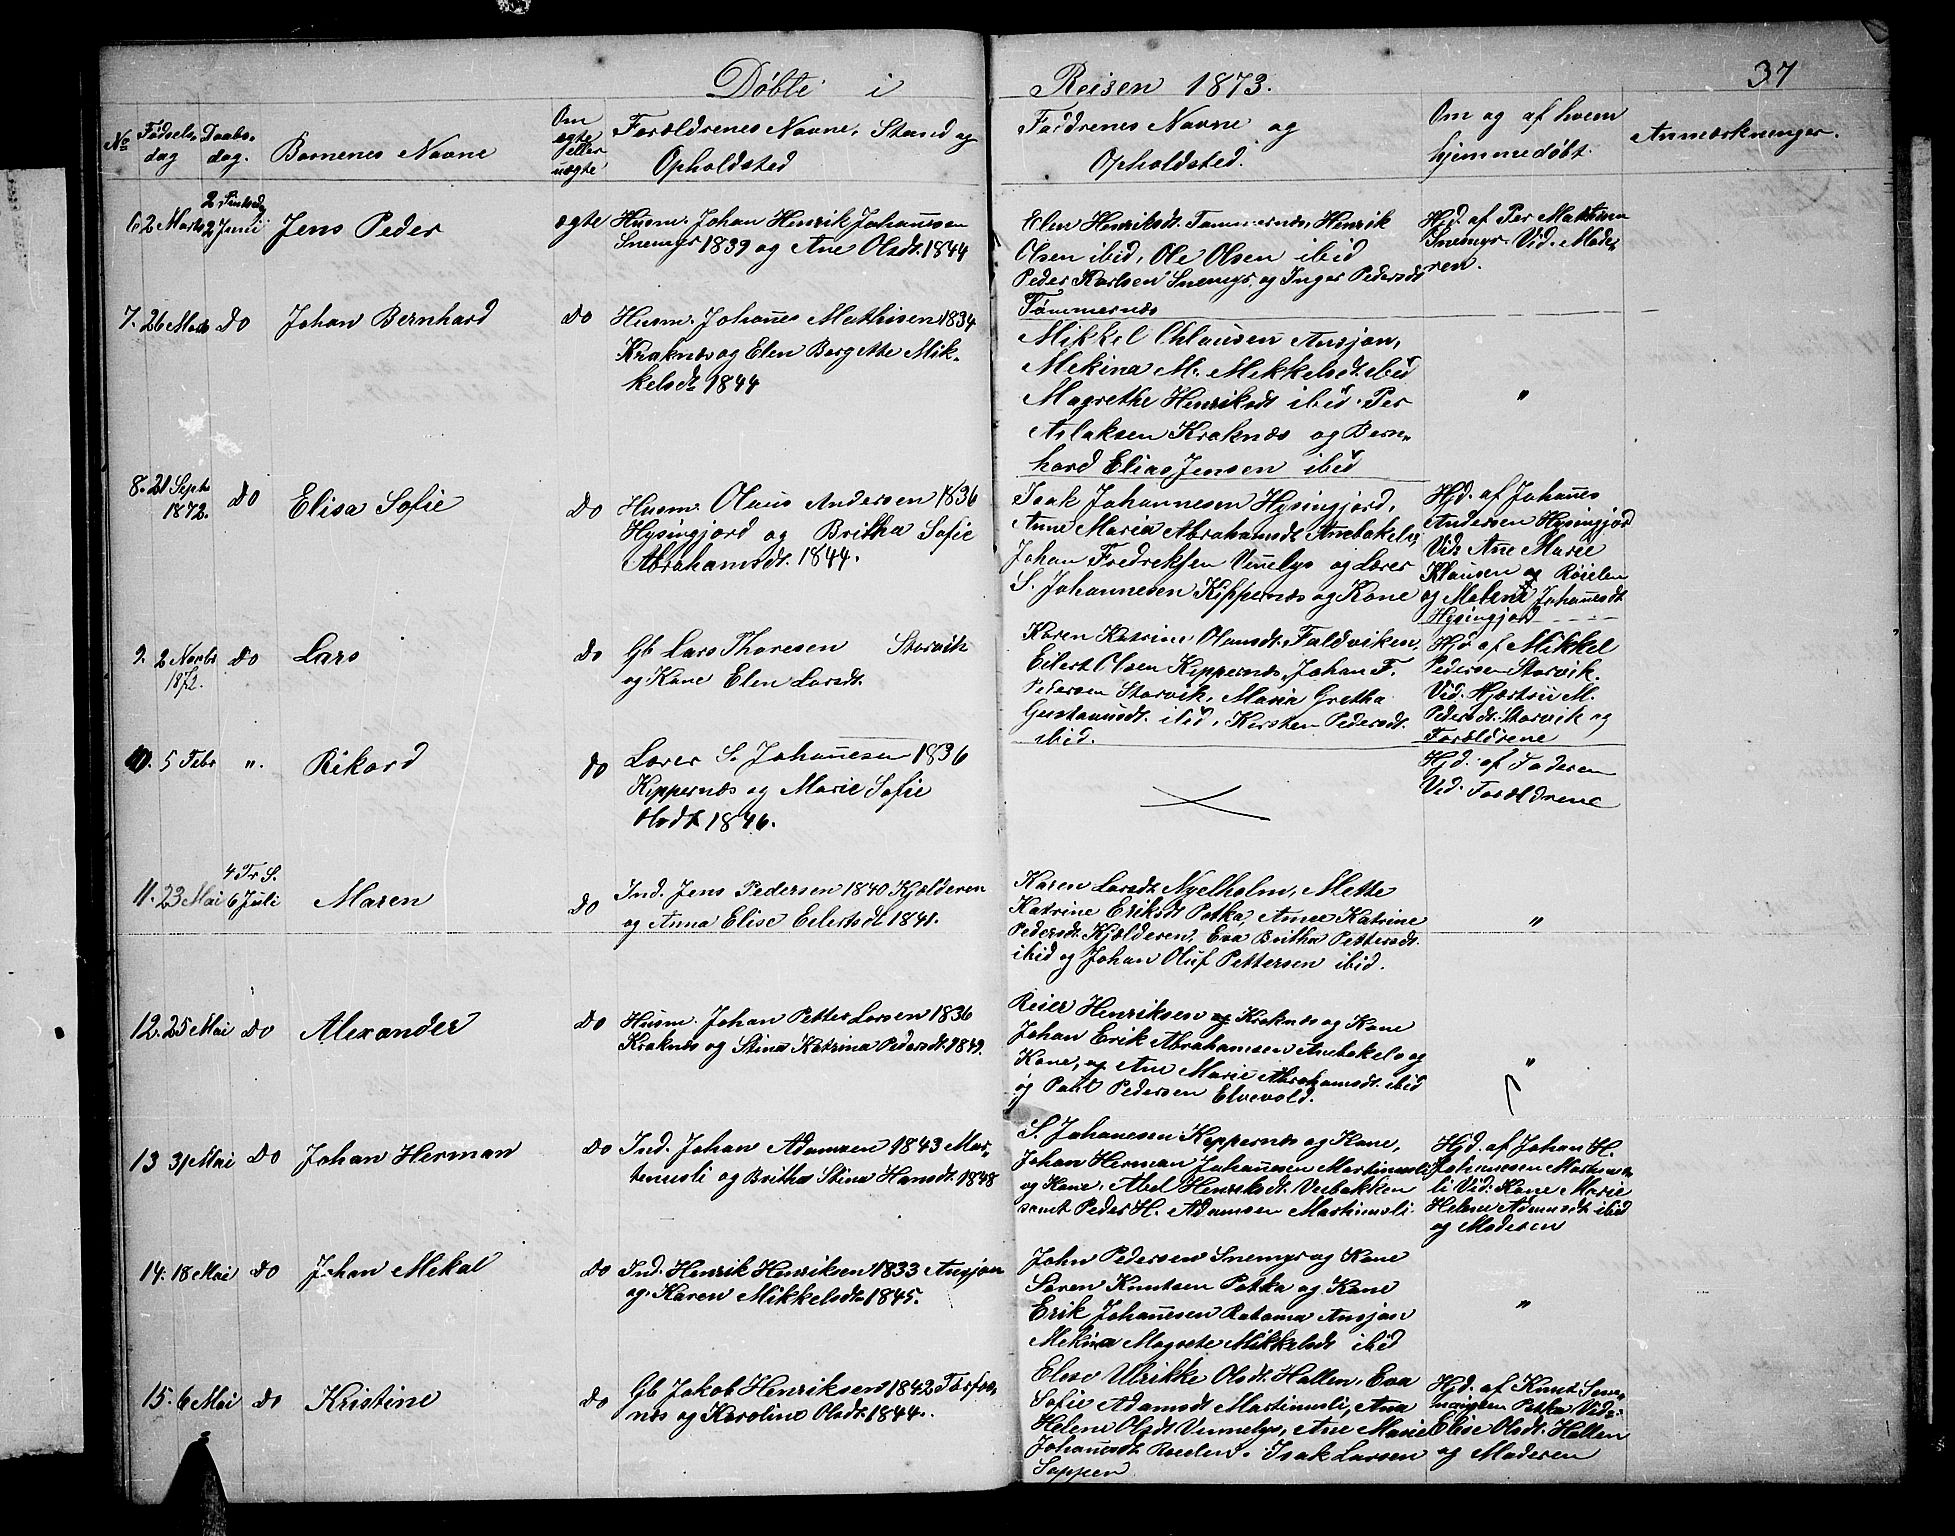 Døbte i Reisen 1873. 37
No
Fødsels-
dag
Daabs-
dag.
Børnenes Navne
Om
ægte
eller
uægte
Forældrenes Navne, Stand og
Opholdsted
Faddrenes Navne og
Opholdsted.
Om og af hvem
hjemmedøbt.
Anmærkninger.
6 2 Marts
2 Juni
Jens Peder
ægte
Husm. Johan Henrik Johannesen
Snemyr 1839 og Ane Olsdt. 1844
Elen Henriksdt. Tømmernæs, Henrik
Olsen ibid, Ole Olsen ibid
Peder Karlsen Snemyr, og Inger Pedersdt.
Tømmernæs
Hjd. af Per
Snemyr. Vid. Mode-
ren.
7. 26 Marts
Do
Johan Bernhard
Do
Husm. Johanes Mathisen 1834
Kraknæs og Elen Bergette Mik-
kelsdt. 1844
Mikkel Chlausen Ansjon,
Mekina M. Mikkelsdt. ibid
Magrethe Henriksdt ibid. Per
Aslaksen Kraknæs og Bern-
hard Elias Jensen ibid
"
8. 21 Septb
1872.
Do
Elisa Sofie
Do
Husm. Olaus Andersen 1836
Hysingjord og Britha Sofie
Abrahamsdt. 1844.
Isak Johannesen Hysingjord,
Anne Maria Abrahamsdt. Anebakels,
Johan Fredriksen Vinnelys og Lærer
S. Johannesen Kippernæs og Kone
Hjd. af Johanes
Andersen Hysingjord
Vid. Ane Marie
Klausen og Røielen
og Malene Johanesdt.
Hysingjord
9. 2 Novbr
1872.
Do
Lars
Do
Gb Lars Thoresen Storvik
og Kone Elen Larsdt.
Karen Katrine Olausdt. Foldviken,
Eilert Olsen Kippernæs, Johan F.
Pedersen Storvik, Maria Gretha
Gustavusdt. ibid, Kirsten Pedersdt.
ibid.
Hjd af Mikkel
Pedersen Storvik.
Vid. Hjertrü M.
Pedersdt. Storvik og
Forældrene
10. 5 Febr
".
Rikard
Do
Lærer S. Johannesen 1836
Kippernæs og Marie Sofie
Olsdt 1846.
Hjd. af Faderen
Vid. Forældrene
11. 23 Mai
4 Tr S.
6 Juli
Maren
Do
Ind. Jens Pedersen 1840 Kjelderen
og Anna Elise Eilertsdt. 1841.
Karen Larsdt. Nyelholm, Mette
Katrine Eriksdt Potka, Anne Katrine
Pedersdt. Kjælderen, Eva Britha Pettersdt.
ibid og Johan Oluf Pettersen ibid.
"
12. 25 Mai
Do
Alexander
Do
Husm. Johan Petter Larsen 1836
Kraknæs og Stina Katrina Pedersdt. 1849.
Reier Henriksen Kraknæs og Kone
Johan Erik Abrahamsen Anebakels og
Kone, og Ane Marie Abrahamsdt. ibid
og Pahl Pedersen Elvevold.
"
13 31 Mai
Do
Johan Herman
Do
Ind. Johan Adamsen 1843 Mar-
tinusli og Britha Stina Hansdt. 1848
S. Johanesen Kippernæs og Kone,
Johan Herman Johannesen Martinusli
og Kone. Abel Henriksdt. Veibakken
samt Peder H. Adamsen Martinusli.
Hjd. af Johan H.
Johanesen Martinus-
li Vid: Kone Marie
Helene Adamsdt. ibid
og Moderen
14. 18 Mai
Do
Johan Mekal
Do
Ind. Henrik Henriksen 1833 Ansjon
og. Karen Mikkelsdt. 1845.
John Pedersen Snemyr og Kone
Søren Knutsen Potka og Kone
Erik Johannesen Ratama Ansjon
Mekina Magrete Mikkelsdt ibid
"
15. 6 Mai
Do
Kristine
Do
Gb Jakob Henriksen 1842 Torfos-
næs og Karoline Olsdt. 1844.
Elise Ulrikke Olsdt. Hallen, Eva
Sofie Adamsdt Martinusli, Ana
Helene Olsdt Vinnelys, Ane Marie
Johanesdt. Røielen. Isak Larsen
Soppen
Hjd. af Knut Søre-
Potka Vid:
Elise Olsdt. Hallen
og Moderen